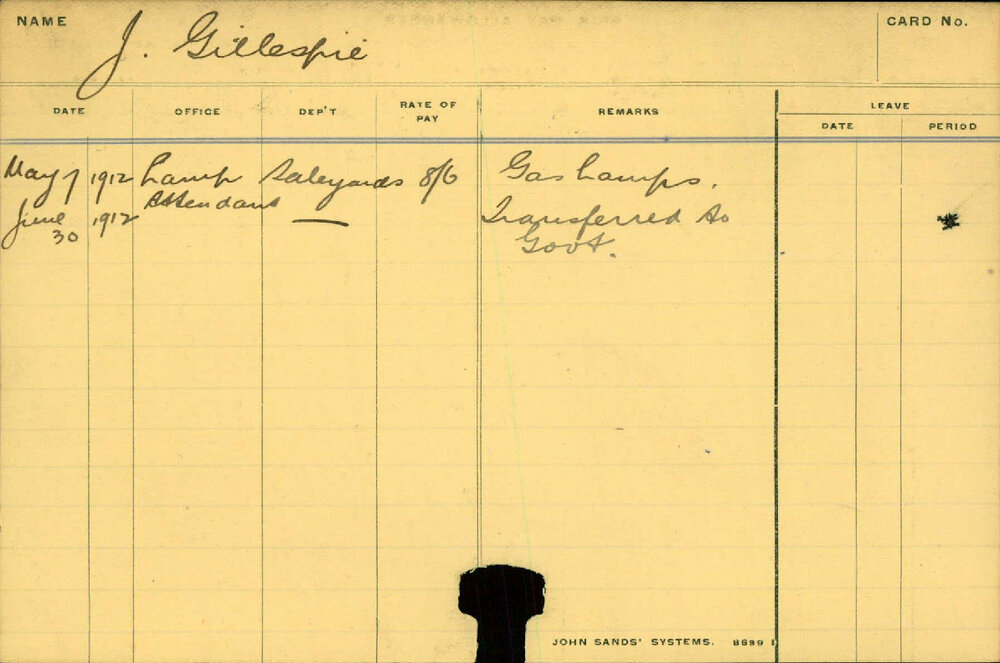 NAME J. Gillespie CARD No.
DATE OFFICE DEP'T RATE OF PAY REMARKS LEAVE
DATE PERIOD
May 7 1912 Lamp Saleyards 8/6 Gas Lamps.
Attendant
June 30 1912 — Transferred to
Govt.
JOHN SANDS' SYSTEMS. 8699